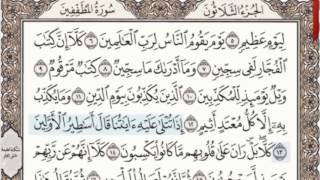 الجزء الثلاثون سورة المطففين
لِيَوْمٍ عَظِيمٍ ٥ يَوْمَ يَقُومُ النَّاسُ لِرَبِّ الْعَالَمِينَ ٦ كَلَّا إِنَّ كِتَابَ
الْفُجَّارِ لَفِي سِجِّينٍ ٧ وَمَا أَدْرَاكَ مَا سِجِّينٌ ٨ كِتَابٌ مَرْقُومٌ ٩
وَيْلٌ يَوْمَئِذٍ لِلْمُكَذِّبِينَ ١٠ الَّذِينَ يُكَذِّبُونَ بِيَوْمِ الدِّينِ ١١ وَمَا يُكَذِّبُ
بِهِ إِلَّا كُلُّ مُعْتَدٍ أَثِيمٍ ١٢ إِذَا تُتْلَى عَلَيْهِ آيَاتُنَا قَالَ أَسَاطِيرُ الْأَوَّلِينَ
١٣ كَلَّا بَلْ رَانَ عَلَى قُلُوبِهِمْ مَا كَانُوا يَكْسِبُونَ ١٤ كَلَّا إِنَّهُمْ عَنْ رَبِّهِمْ